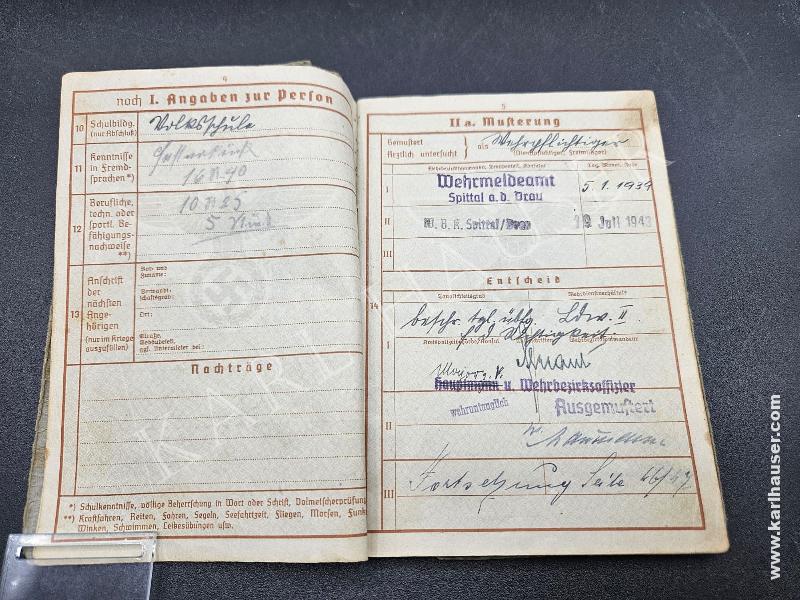 4
noch I. Angaben zur Person
10 Schulbildg. (nur Abschluß)
Volksschule
11 Kenntnisse in Fremdsprachen*)
16 N 40
12 Berufliche, techn. oder sportl. Befähigungsnachweise **)
10 N 25
5
13 Anschrift der nächsten Angehörigen (nur im Kriege auszufüllen)
Vor- und Zuname:
Verwandtschaftsgrad:
Ort:
Straße:
Gebäudeteil, ggf. Untermieter bei:
Nachträge
*) Schulkenntnisse, völlige Beherrschung in Wort oder Schrift, Dolmetscherprüfung
**) Kraftfahren, Reiten, Fahren, Segeln, Seefahrtzeit, Fliegen, Morsen, Funk
Winken, Schwimmen, Leibesübungen usw.
5
IIa. Musterung
Gemustert
Ärztlich untersucht
als
Wehrpflichtiger
(Dienstpflichtiger, Freiwilliger)
I
Wehrmeldeamt
Spittal a.d. Drau
5.1.1939
II
W.B.K. Spittal/Drau
19. Juli 1943
III
Entscheid
14
Tauglichkeitsgrad
Wehrdienstverhältnis
I
beschr. tgl. Ldw. II.
Hauptmann u Wehrbezirksoffizier
wehruntauglich
Ausgemustert
II
III
Fortsetzung Seite
KARL HAUSER
www.karlhauser.com